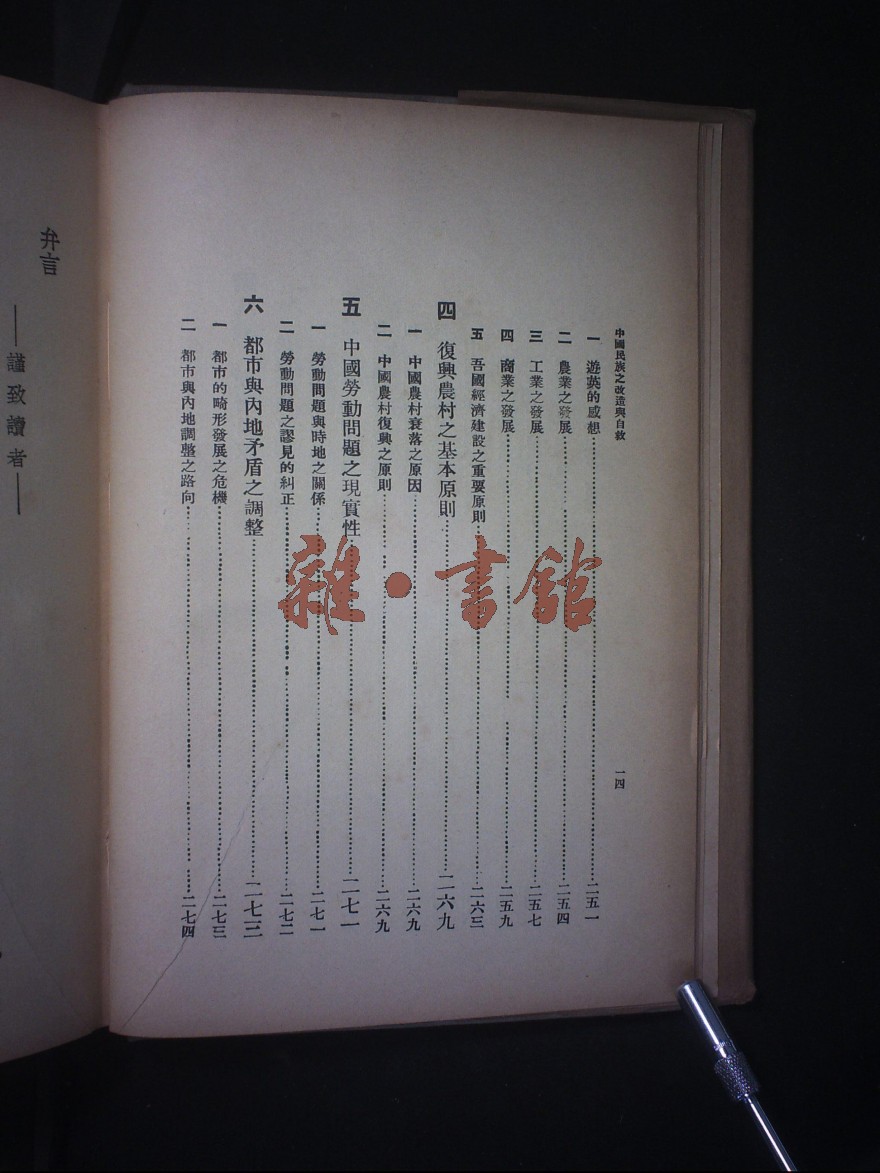 中國民族之改造與自救
一四
一 遊英的感想……二五一
二 農業之發展……二五四
三 工業之發展……二五七
四 商業之發展……二五九
五 吾國經濟建設之重要原則……二六三
四 復興農村之基本原則……二六九
一 中國農村衰落之原因……二六九
二 中國農村復興之原則……二六九
五 中國勞動問題之現實性……二七一
一 勞動問題與時地之關係……二七一
二 勞動問題之謬見的糾正……二七二
六 都市與內地矛盾之調整……二七三
一 都市的畸形發展之危機……二七三
二 都市與內地調整之路向……二七四
弁言
——謹致讀者——
雜·書館